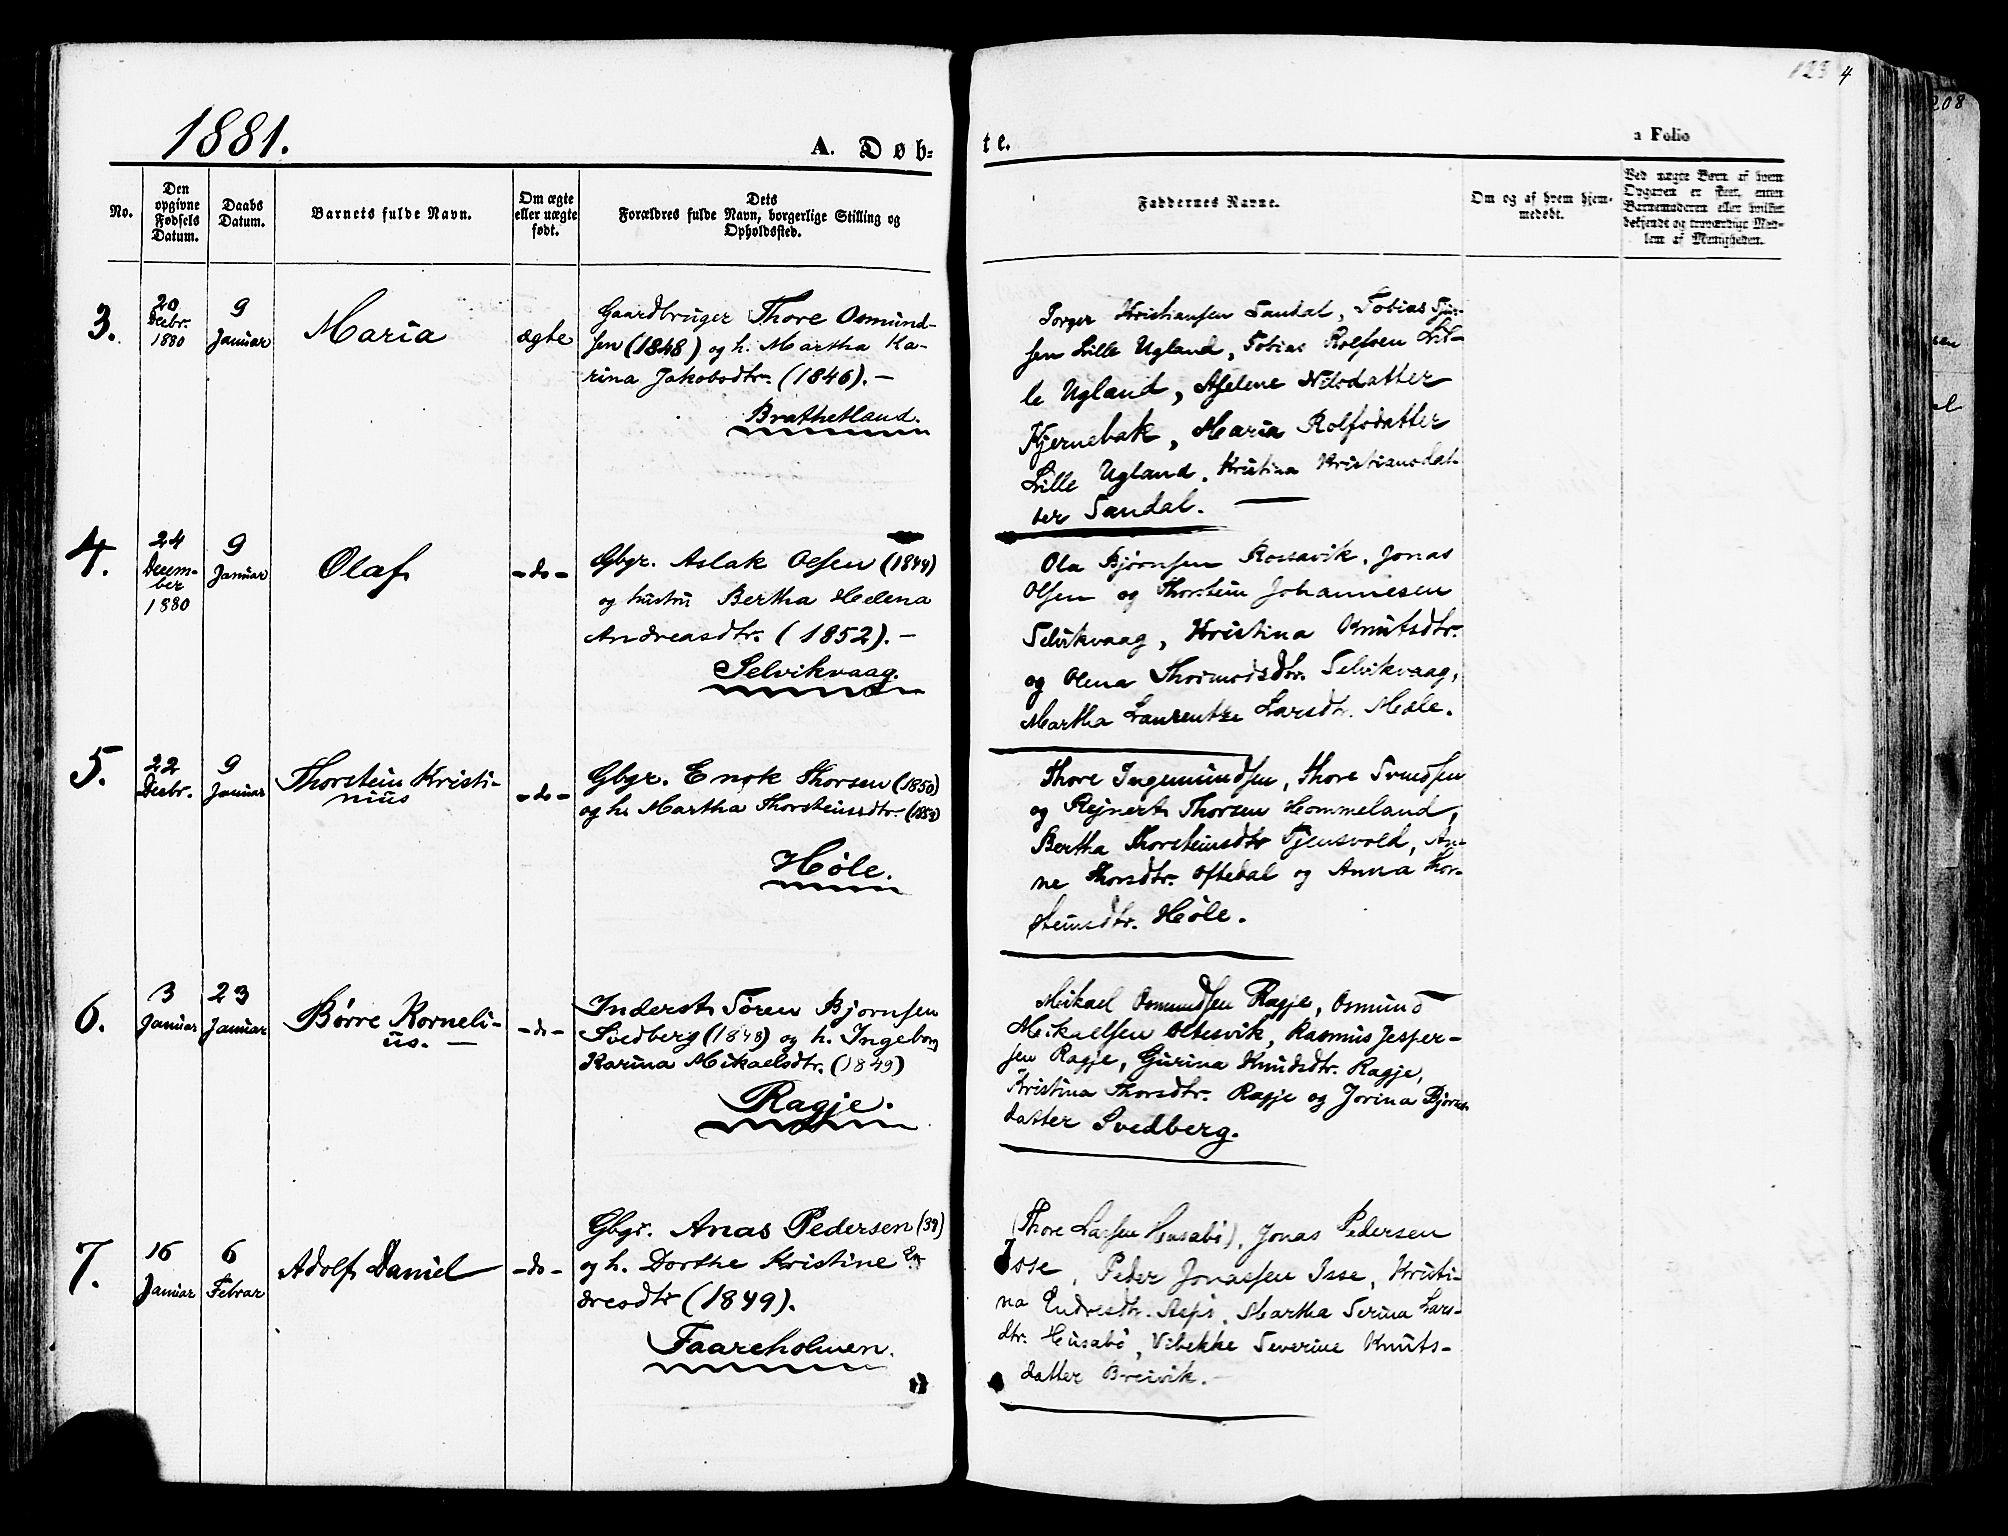 1881.
A. Døb-
te.
123 4
208
a Folio
No.
Den opgivne Fødsels Datum.
Daabs Datum.
Barnets fulde Navn.
Om ægte eller uægte født.
Dets Forældres fulde Navn, borgerlige Stilling og Opholdssted.
Faddernes Navne.
Om og af hvem hjem-
medøbt.
Ved uægte Børn af hvem
Opgaven er skeet, enten
Barnemoderen eller hvilke
bekjendte og troværdige Med-
lem af Menigheden.
3.
20
Decbr.
1880
9
Januar
Maria
ægte
Gaardbruger Thore Osmund-
sen (1848) og h. Martha Ka-
rina Jakobsdtr. (1846).-
Brathetland.
Torger Kristiansen Sandal, Tobias
sen Lille Ugland, Tobias Rolfsen Lil-
le Ugland, Aselene Nilsdatter
Kjernebak, Maria Rolfsdatter
Lille Ugland, Kristina Kristiansdat-
ter Sandal.
4.
24
Decem-
ber
1880
9
Januar
Olaf
-do-
Gbgr. Aslak Olsen (1844)
og hustru Bertha Helena
Andreasdtr. (1852).-
Selvikvaag.
Ola Bjørnsen Rossavik, Jonas
Olsen og Thorstein Johannesen
Selvikvaag, Kristina Knutsdtr.
og Olena Thormodsdtr. Selvikvaag,
Martha Laurentze Larsdtr. Mæle.
5.
22
Decbr.
9
Januar
Thorstein Kristi-
nius
-do-
Gbgr. Enok Thorsen (1850)
og h. Martha Thorsteinsdtr.
Høle.
Thore Ingemundsen, Thore Svendsen
og Rejnert Thorsen Hommeland,
Bertha Thorsteinsdtr Tjensvold, An-
ne Thorsdtr. Oftedal og Anna Thor-
steinsdtr. Høle.
6.
3
Januar
23
Januar
Børre Korneli-
us. -
-do-
Inderst Søren Bjørnsen
Svedberg (1848) og h. Ingeborg
Karina Mikaelsdtr. (1849)
Ragje.
Mikael Osmundsen Ragje, Osmund
Mikaelsen Oltesvik, Rasmus Jesper-
sen Ragje, Gurina Knudsdtr. Ragje,
Kristina Thorsdtr. Ragje og Jorina Bjørns-
datter Svedberg.
7.
16
Januar
6
Februar
Adolf Daniel
-do-
Gbgr. Anas Pedersen (39)
og h. Dorthe Kristine En-
dresdtr (1849).
Faareholmen.
(Thore Larsen Husabø), Jonas Pedersen
Isse, Peder Jonassen Isse, Kristi-
na Endresdtr. Aspø, Martha Serina Lars-
dtr. Husabø, Vibekke Severine Knuts-
datter Breivik.-